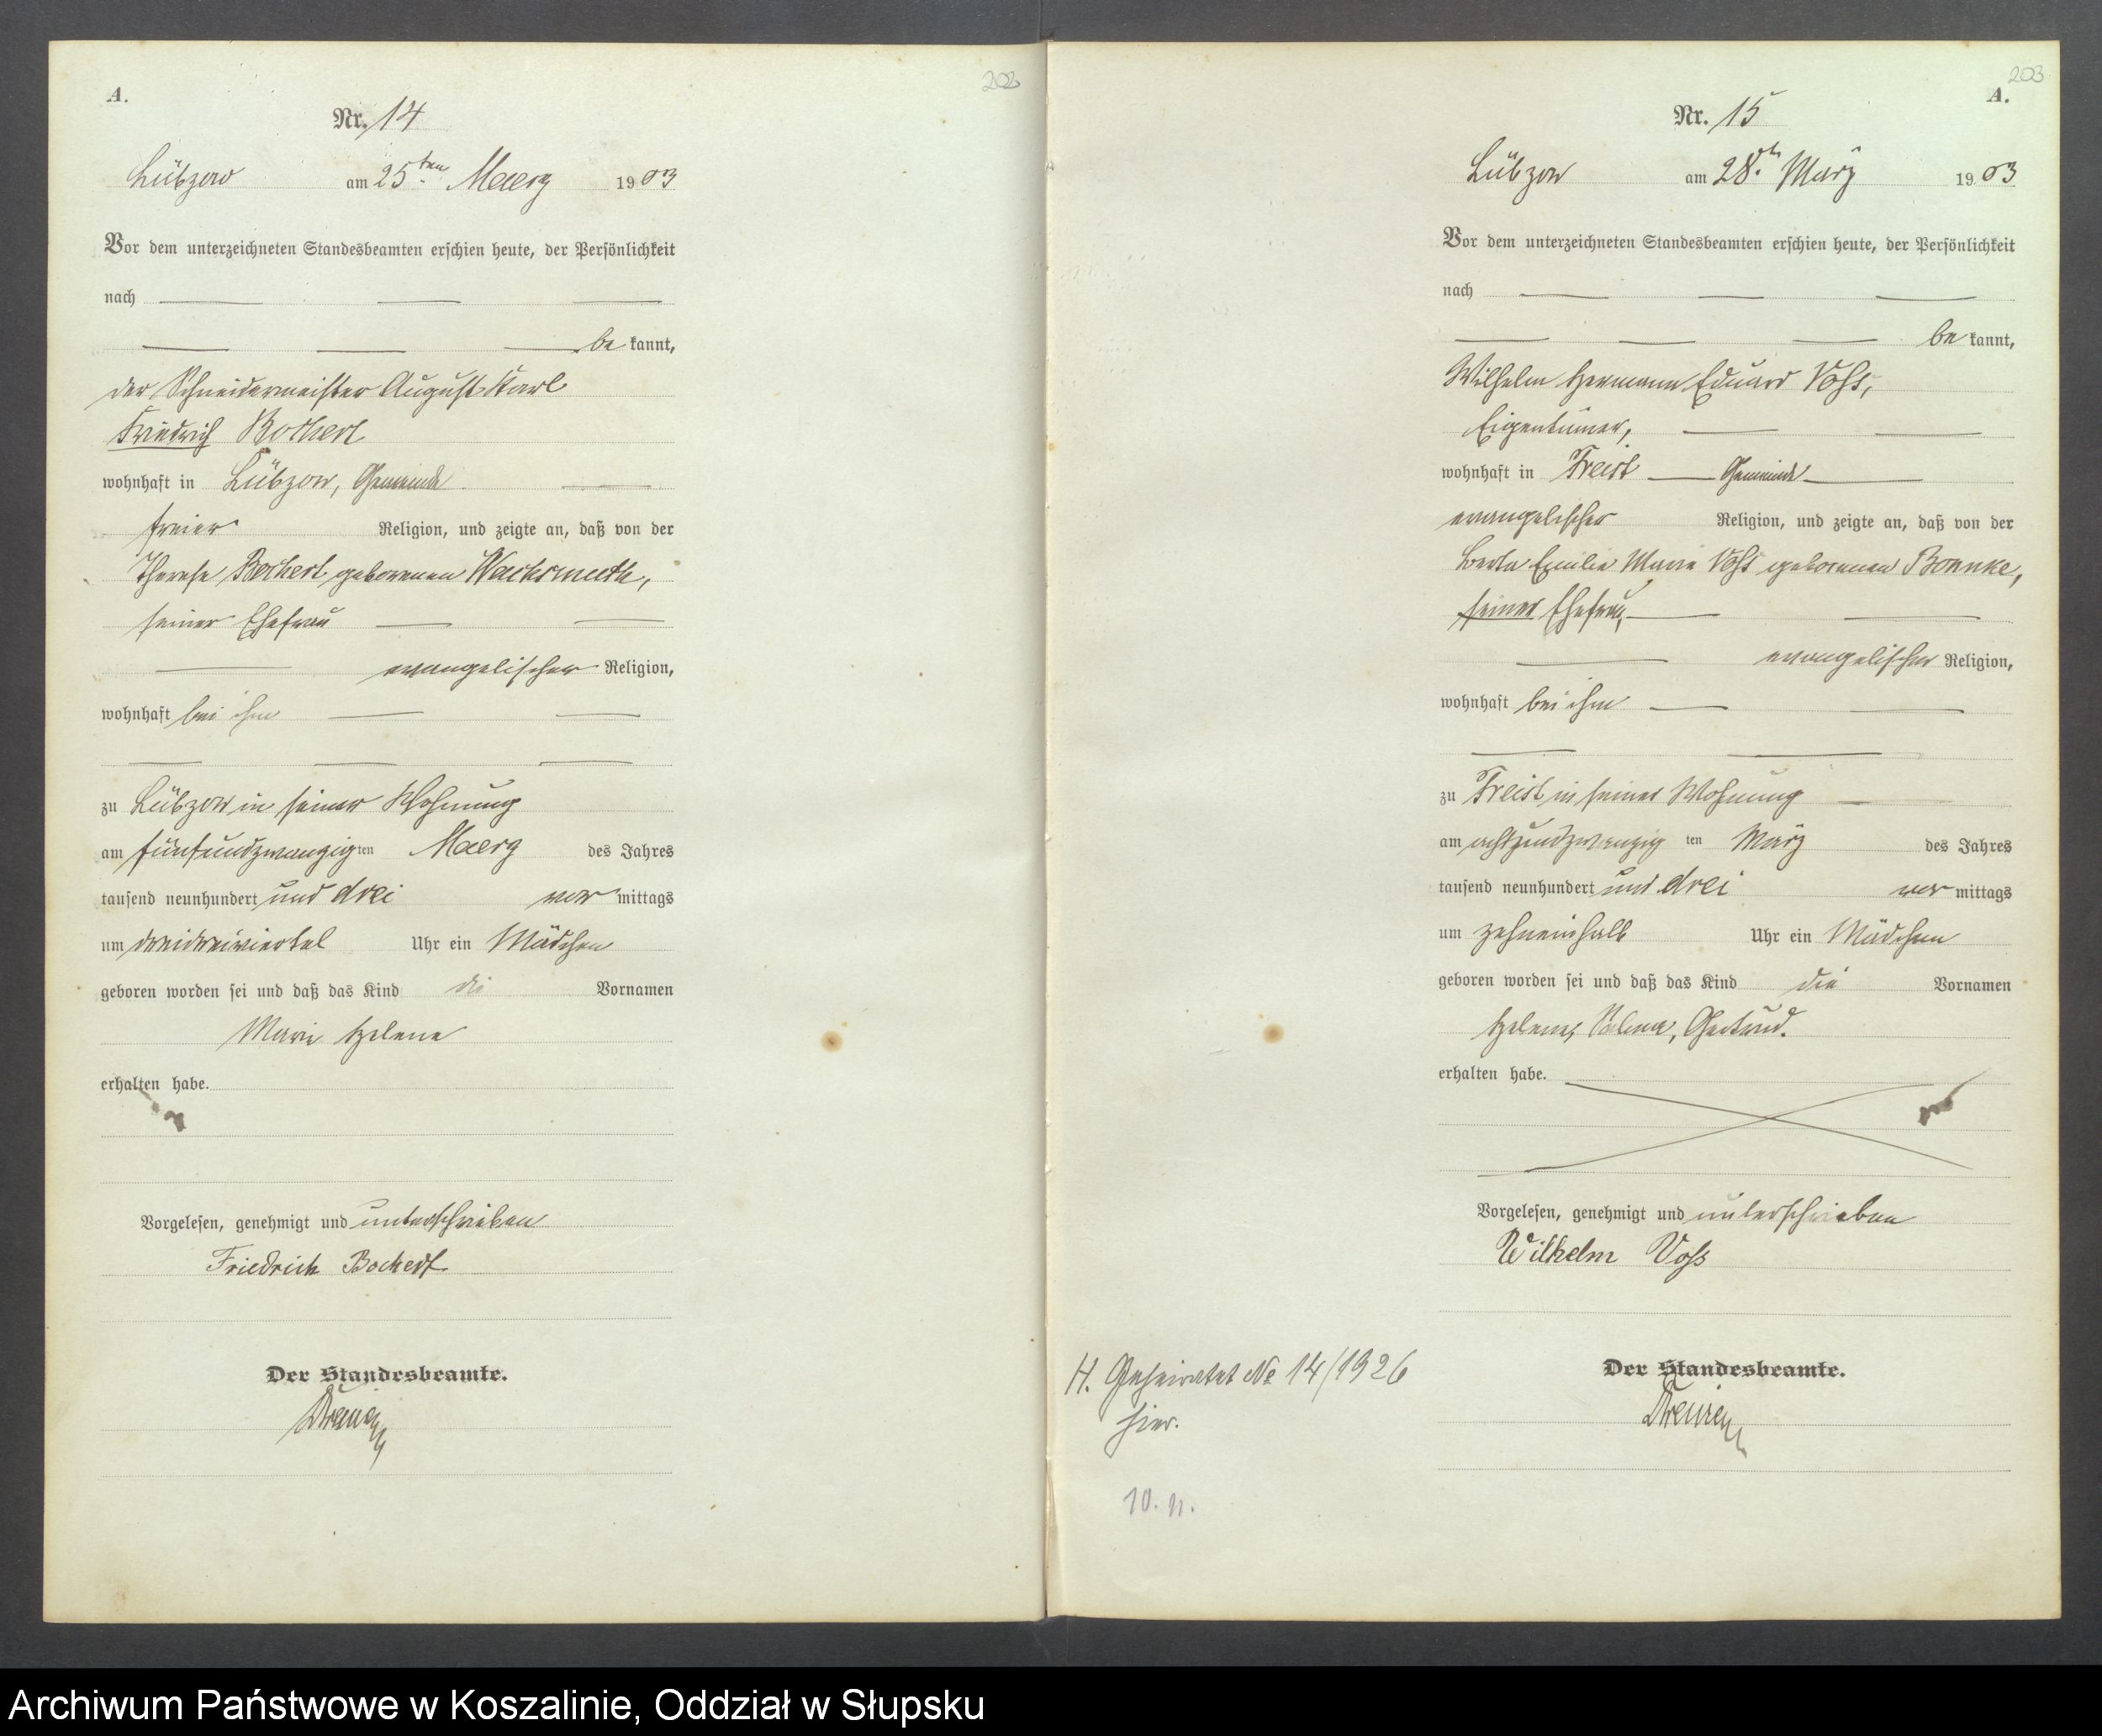 202
A.
Nr. 14
Lübzow am 25ten Maerz 1903
Vor dem unterzeichneten Standesbeamten erschien heute, der Persönlichkeit
nach
be kannt,
der Schneidermeister August Karl
Friedrich Bochert
wohnhaft in Lübzow, Gemeinde
freier Religion, und zeigte an, daß von der
Therese Bochert geborenen Wachsmuth,
seiner Ehefrau
evangelischer Religion,
wohnhaft bei ihm
zu Lübzow in seiner Wohnung
am fünfundzwanzig ten Maerz des Jahres
tausend neunhundert und drei vor mittags
um dreidreiviertel Uhr ein Mädchen
geboren worden sei und daß das Kind die Vornamen
Marie Helene
erhalten habe.
Vorgelesen, genehmigt und unterschrieben
Friedrich Bochert
Der Standesbeamte.
203
A.
Nr. 15
Lübzow am 28ten März 1903
Vor dem unterzeichneten Standesbeamten erschien heute, der Persönlichkeit
nach
be kannt,
Wilhelm Hermann Eduard Voß,
Eigentümer,
wohnhaft in Freist Gemeinde
evangelischer Religion, und zeigte an, daß von der
Berta Emilie Marie Voß geborenen Bonnke,
seiner Ehefrau,
evangelischer Religion,
wohnhaft bei ihm
zu Freist in seiner Wohnung
am achtundzwanzig ten März des Jahres
tausend neunhundert und drei vor mittags
um zehneinhalb Uhr ein Mädchen
geboren worden sei und daß das Kind die Vornamen
Helene, Gertrud.
erhalten habe.
Vorgelesen, genehmigt und unterschrieben
Wilhelm Voß
Der Standesbeamte.
H. Geheiratet No 14/1926
hier.
10. 11.
Archiwum Państwowe w Koszalinie, Oddział w Słupsku